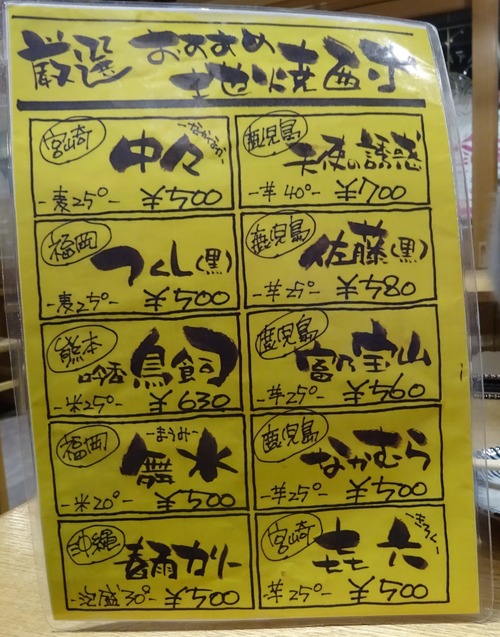 厳選 おすすめ
地焼酎
宮崎
なかなか
中々
-麦25°- ¥500
鹿児島
天使の誘惑
-芋40°- ¥700
福岡
つくし(黒)
-麦25°- ¥500
鹿児島
佐藤(黒)
-芋25°- ¥580
熊本
吟香 鳥飼
-米25°- ¥630
鹿児島
富乃宝山
-芋25°- ¥560
福岡
-まうみ-
舞水
-米20°- ¥500
鹿児島
なかむら
-芋25°- ¥500
沖縄
春雨カリー
-泡盛30°- ¥500
宮崎
きろく
㐂六
-芋25°- ¥500